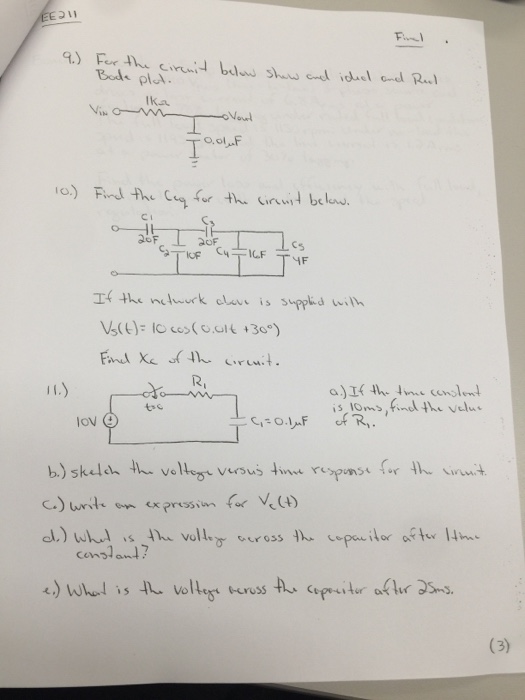 EE211
Final
9.) For the circuit below show and ideal and Real
Bode plot.
1KΩ
Vin
Vout
0.01μF
10.) Find the Ceq for the circuit below.
C1
C3
20F
20F
C2
10F
C4
16F
C5
4F
If the network above is supplied with
Vs(t) = 10 cos(0.01t + 30°)
Find Xc of the circuit.
11.)
R1
t=0
10V
C1 = 0.1μF
a.) If the time constant
is 10ms, find the value
of R1.
b.) sketch the voltage versus time response for the circuit.
c.) write an expression for Vc(t)
d.) what is the voltage across the capacitor after 1 time
constant?
e.) What is the voltage across the capacitor after 25ms.
(3)